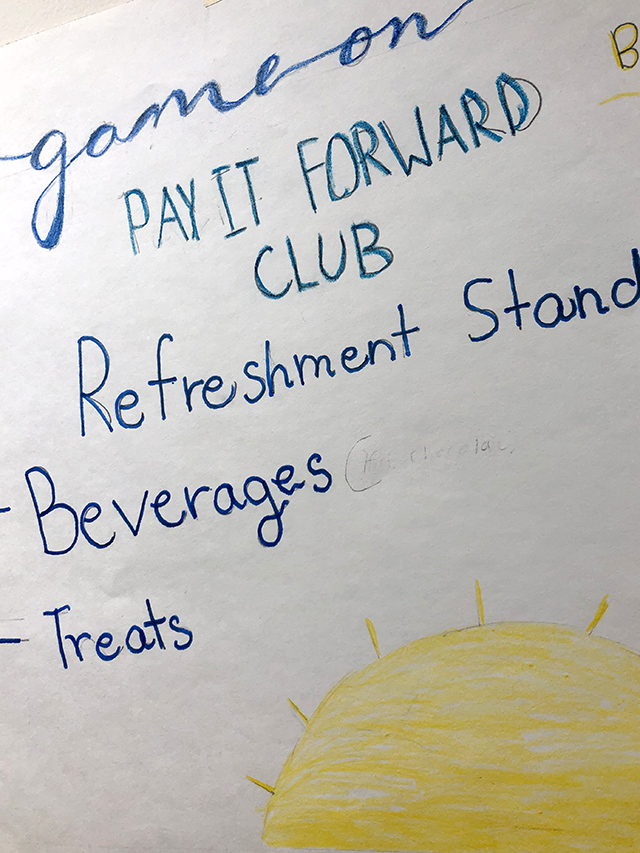 game on
B
PAY IT FORWARD
CLUB
Refreshment Stand
- Beverages
- Treats